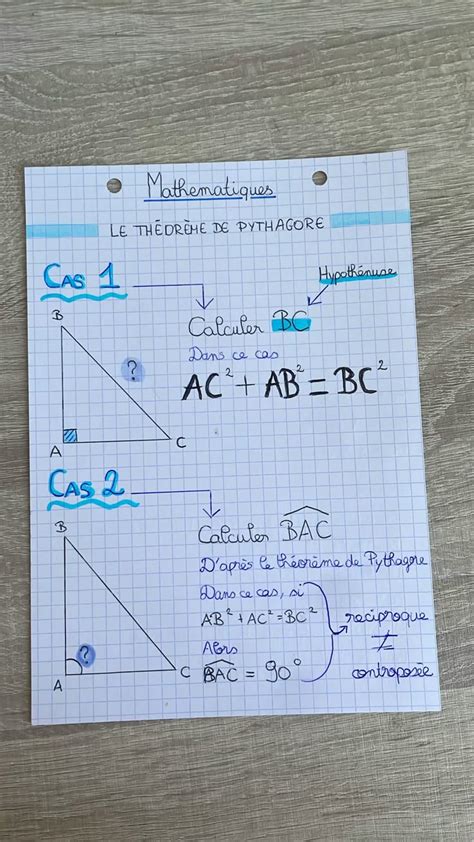 Mathematiques
LE THÉORÈME DE PYTHAGORE
CAS 1
Hypothénuse
B
Calculer BC
?
Dans ce cas
AC² + AB² = BC²
A
C
CAS 2
B
Calculer B͡AC
D'après le théorème de Pythagore
Dans ce cas, si
AB² + AC² = BC²
réciproque
?
Alors
≠
A
C
B͡AC = 90°
contraposée